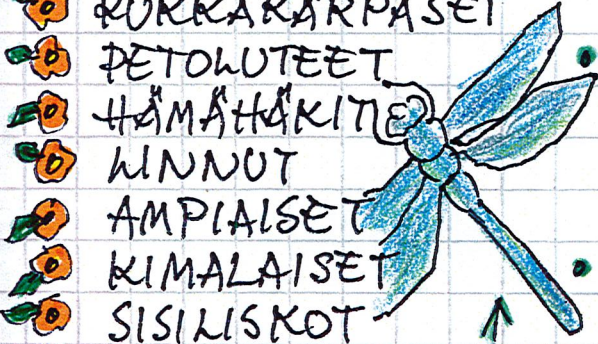 KUKKAKÄRPÄSET
PETOLUTEET
HÄMÄHÄKIT
LINNUT
AMPIAISET
KIMALAISET
SISILISKOT